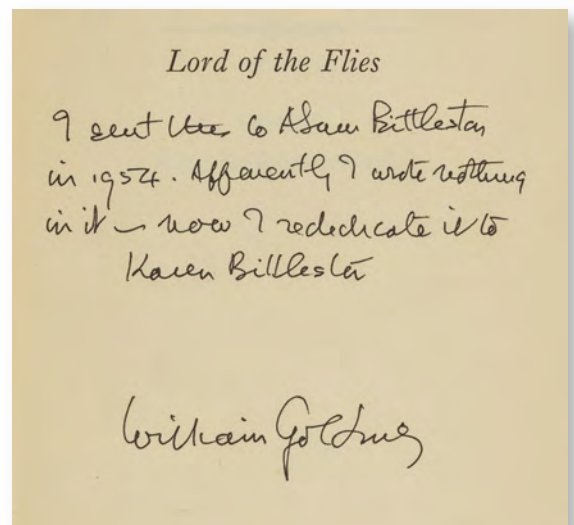 Lord of the Flies
I sent this to Adam Bittleston
in 1954. Apparently I wrote nothing
in it – now I rededicate it to
Karen Bittleston
William Golding